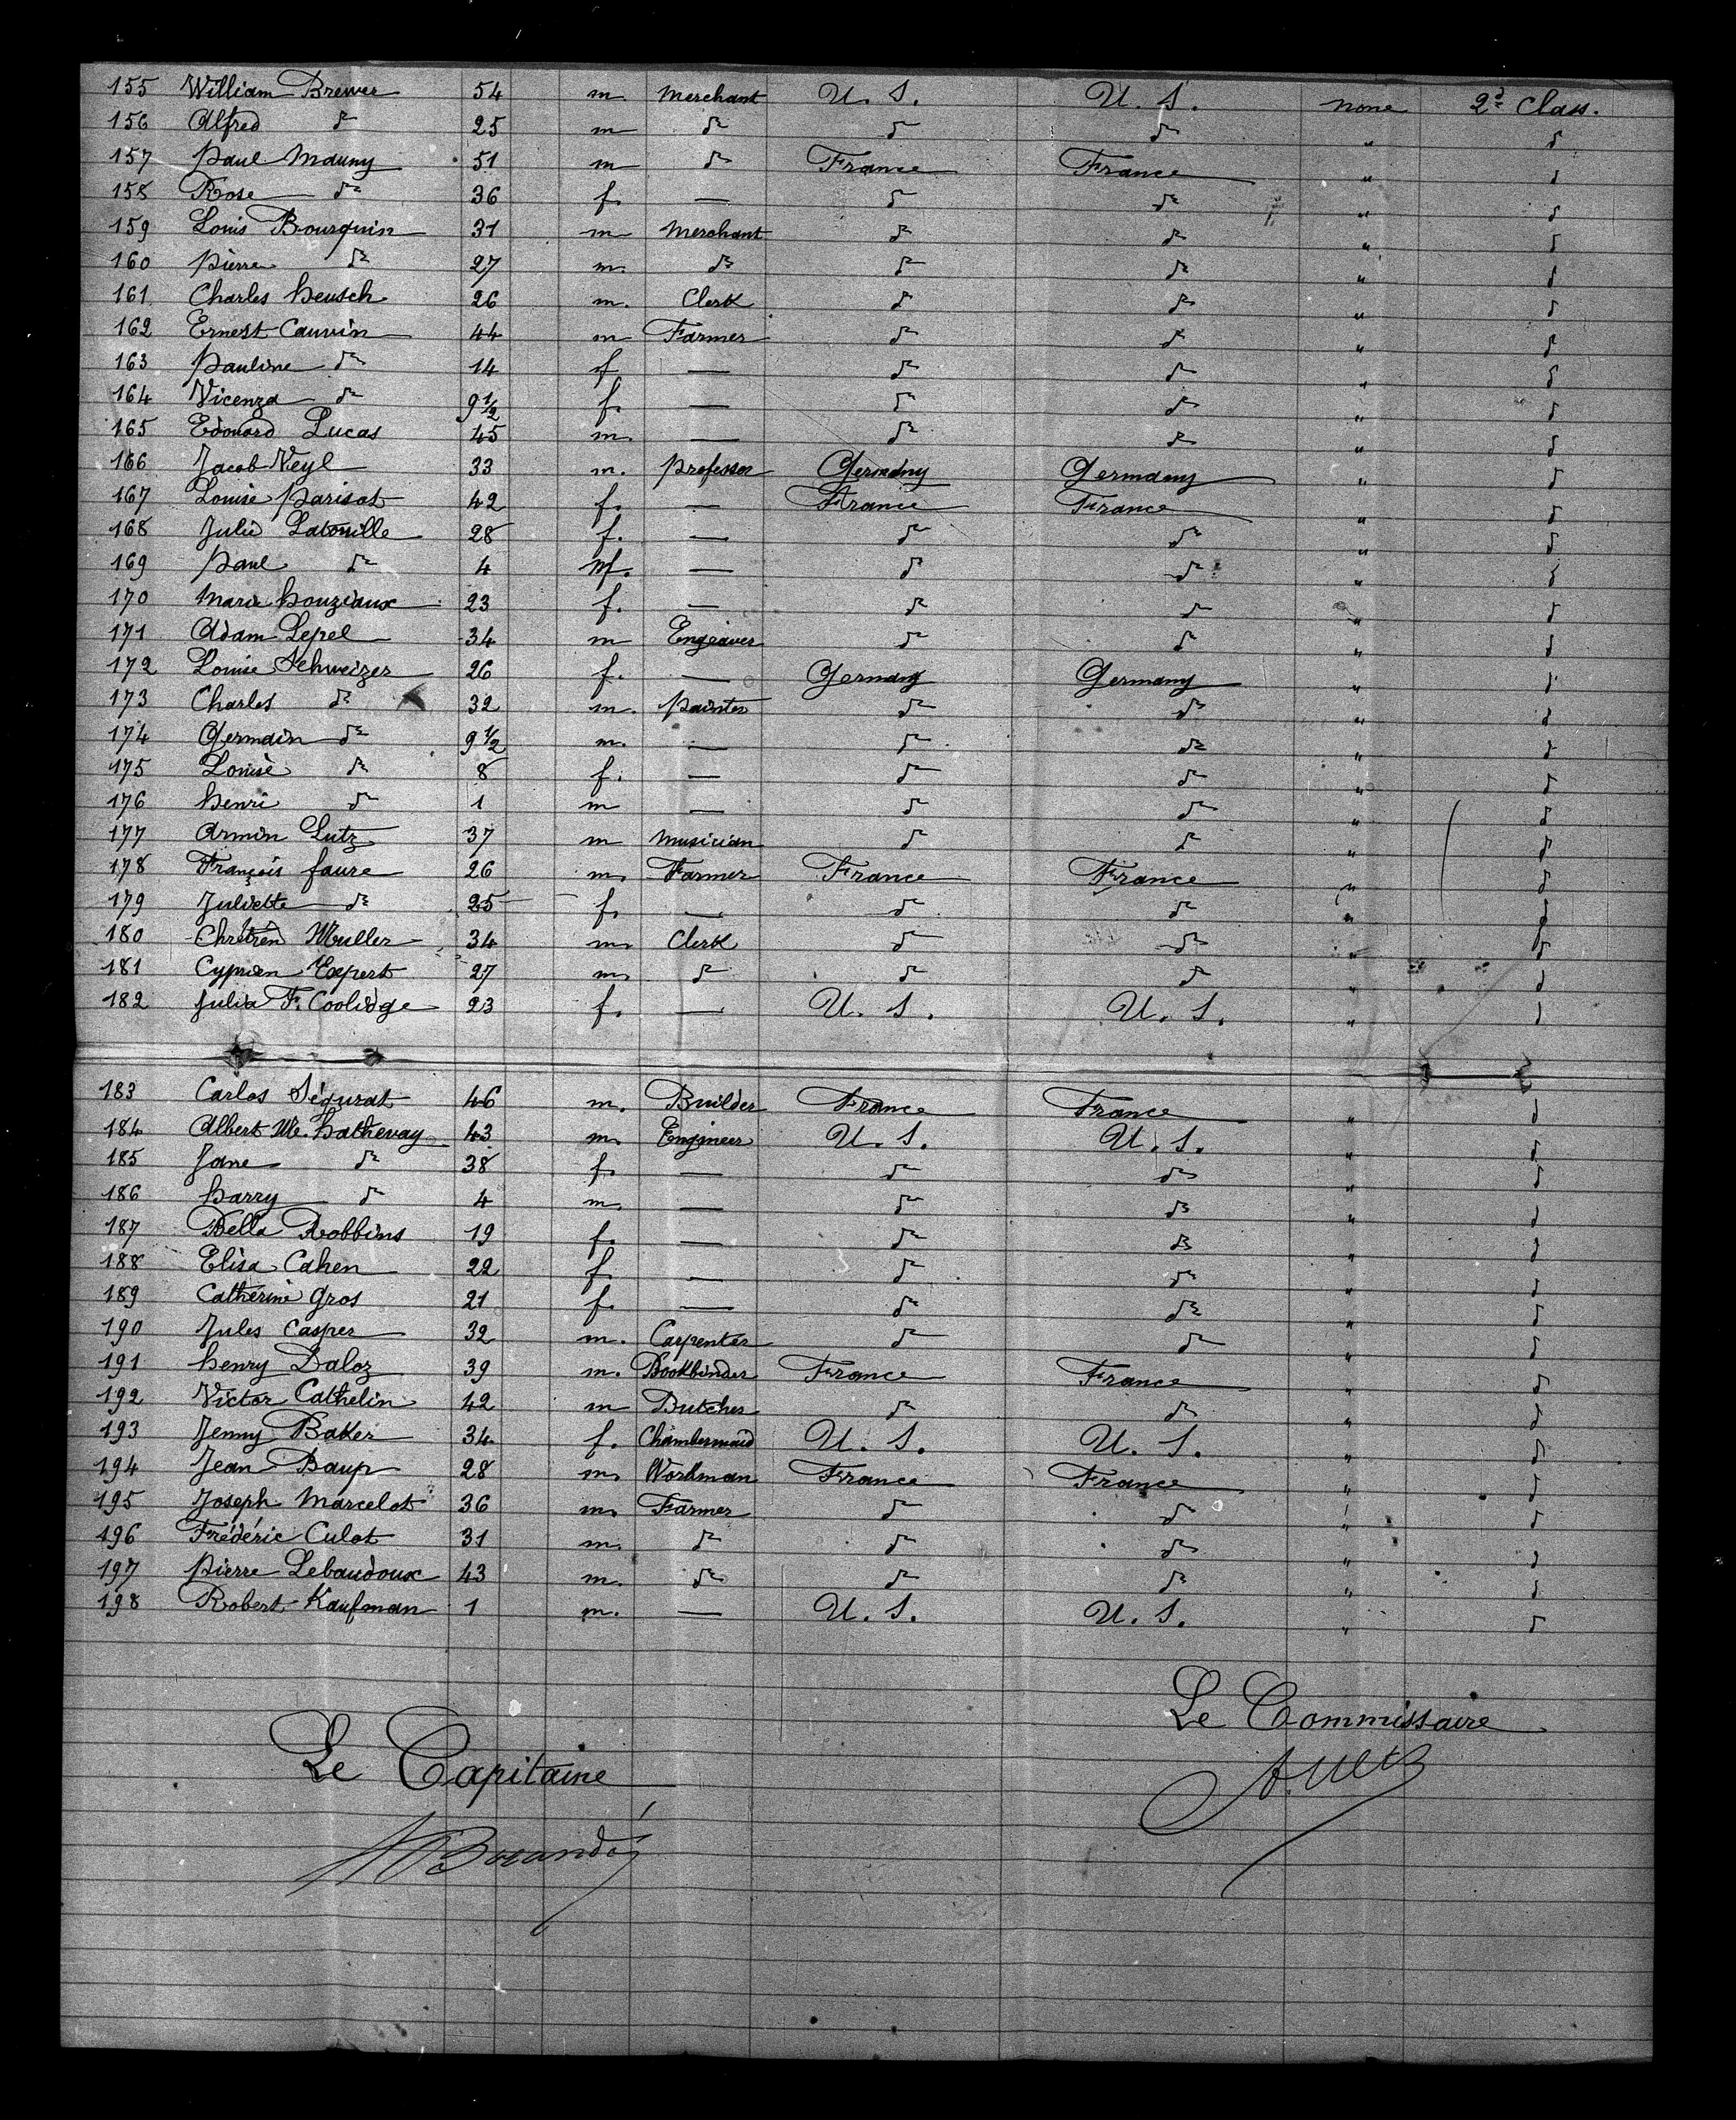 155 William Brewer 54 m. Merchant U. S. U. S. none 2d Class.
156 Alfred do 25 m do do do " do
157 Paul Mauny 51 m do France France " do
158 Rose do 36 f. — do do " do
159 Louis Bourquin 31 m Merchant do do " do
160 Pierre do 27 m. do do do " do
161 Charles Heusch 26 m. Clerk do do " do
162 Ernest Cauvin 44 m Farmer do do " do
163 Pauline do 14 f — do do " do
164 Vicenza do 9 1/2 f. — do do " do
165 Edouard Lucas 45 m. — do do " do
166 Jacob Weyl 33 m. Professor Germany Germany " do
167 Louise Parisot 42 f. — France France " do
168 Julie Latouille 28 f. — do do " do
169 Paul do 4 m. — do do " do
170 Marie Houziaux 23 f. — do do " do
171 Adam Lepel 34 m Engraver do do " do
172 Louise Schweizer 26 f. — Germany Germany " do
173 Charles do 32 m. Painter do do " do
174 Germain do 9 1/2 m. — do do " do
175 Louise do 8 f. — do do " do
176 Henri do 1 m — do do " do
177 Armin Lutz 37 m Musician do do " do
178 François Faure 26 m. Farmer France France " do
179 Juliette do 25 f. — do do " do
180 Chrétien Muller 34 m. Clerk do do " do
181 Cyprien Expert 27 m. do do do " do
182 Julia F. Coolidge 23 f. — U. S. U. S. " do
183 Carlos Ségurat 46 m. Builder France France " do
184 Albert M. Hathevay 43 m. Engineer U. S. U. S. " do
185 Jane do 38 f. — do do " do
186 Harry do 4 m. — do do " do
187 Della Robbins 19 f. — do do " do
188 Elisa Cahen 22 f. — do do " do
189 Catherine Gros 21 f. — do do " do
190 Jules Casper 32 m. Carpenter do do " do
191 Henry Daloz 39 m. Bookbinder France France " do
192 Victor Cathelin 42 m Butcher do do " do
193 Jenny Baker 34 f. Chambermaid U. S. U. S. " do
194 Jean Baup 28 m. Workman France France " do
195 Joseph Marcelot 36 m. Farmer do do " do
196 Frédéric Culot 31 m. do do do " do
197 Pierre Lebaudoux 43 m. do do do " do
198 Robert Kaufman 1 m. — U. S. U. S. " do
Le Commissaire
Le Capitaine